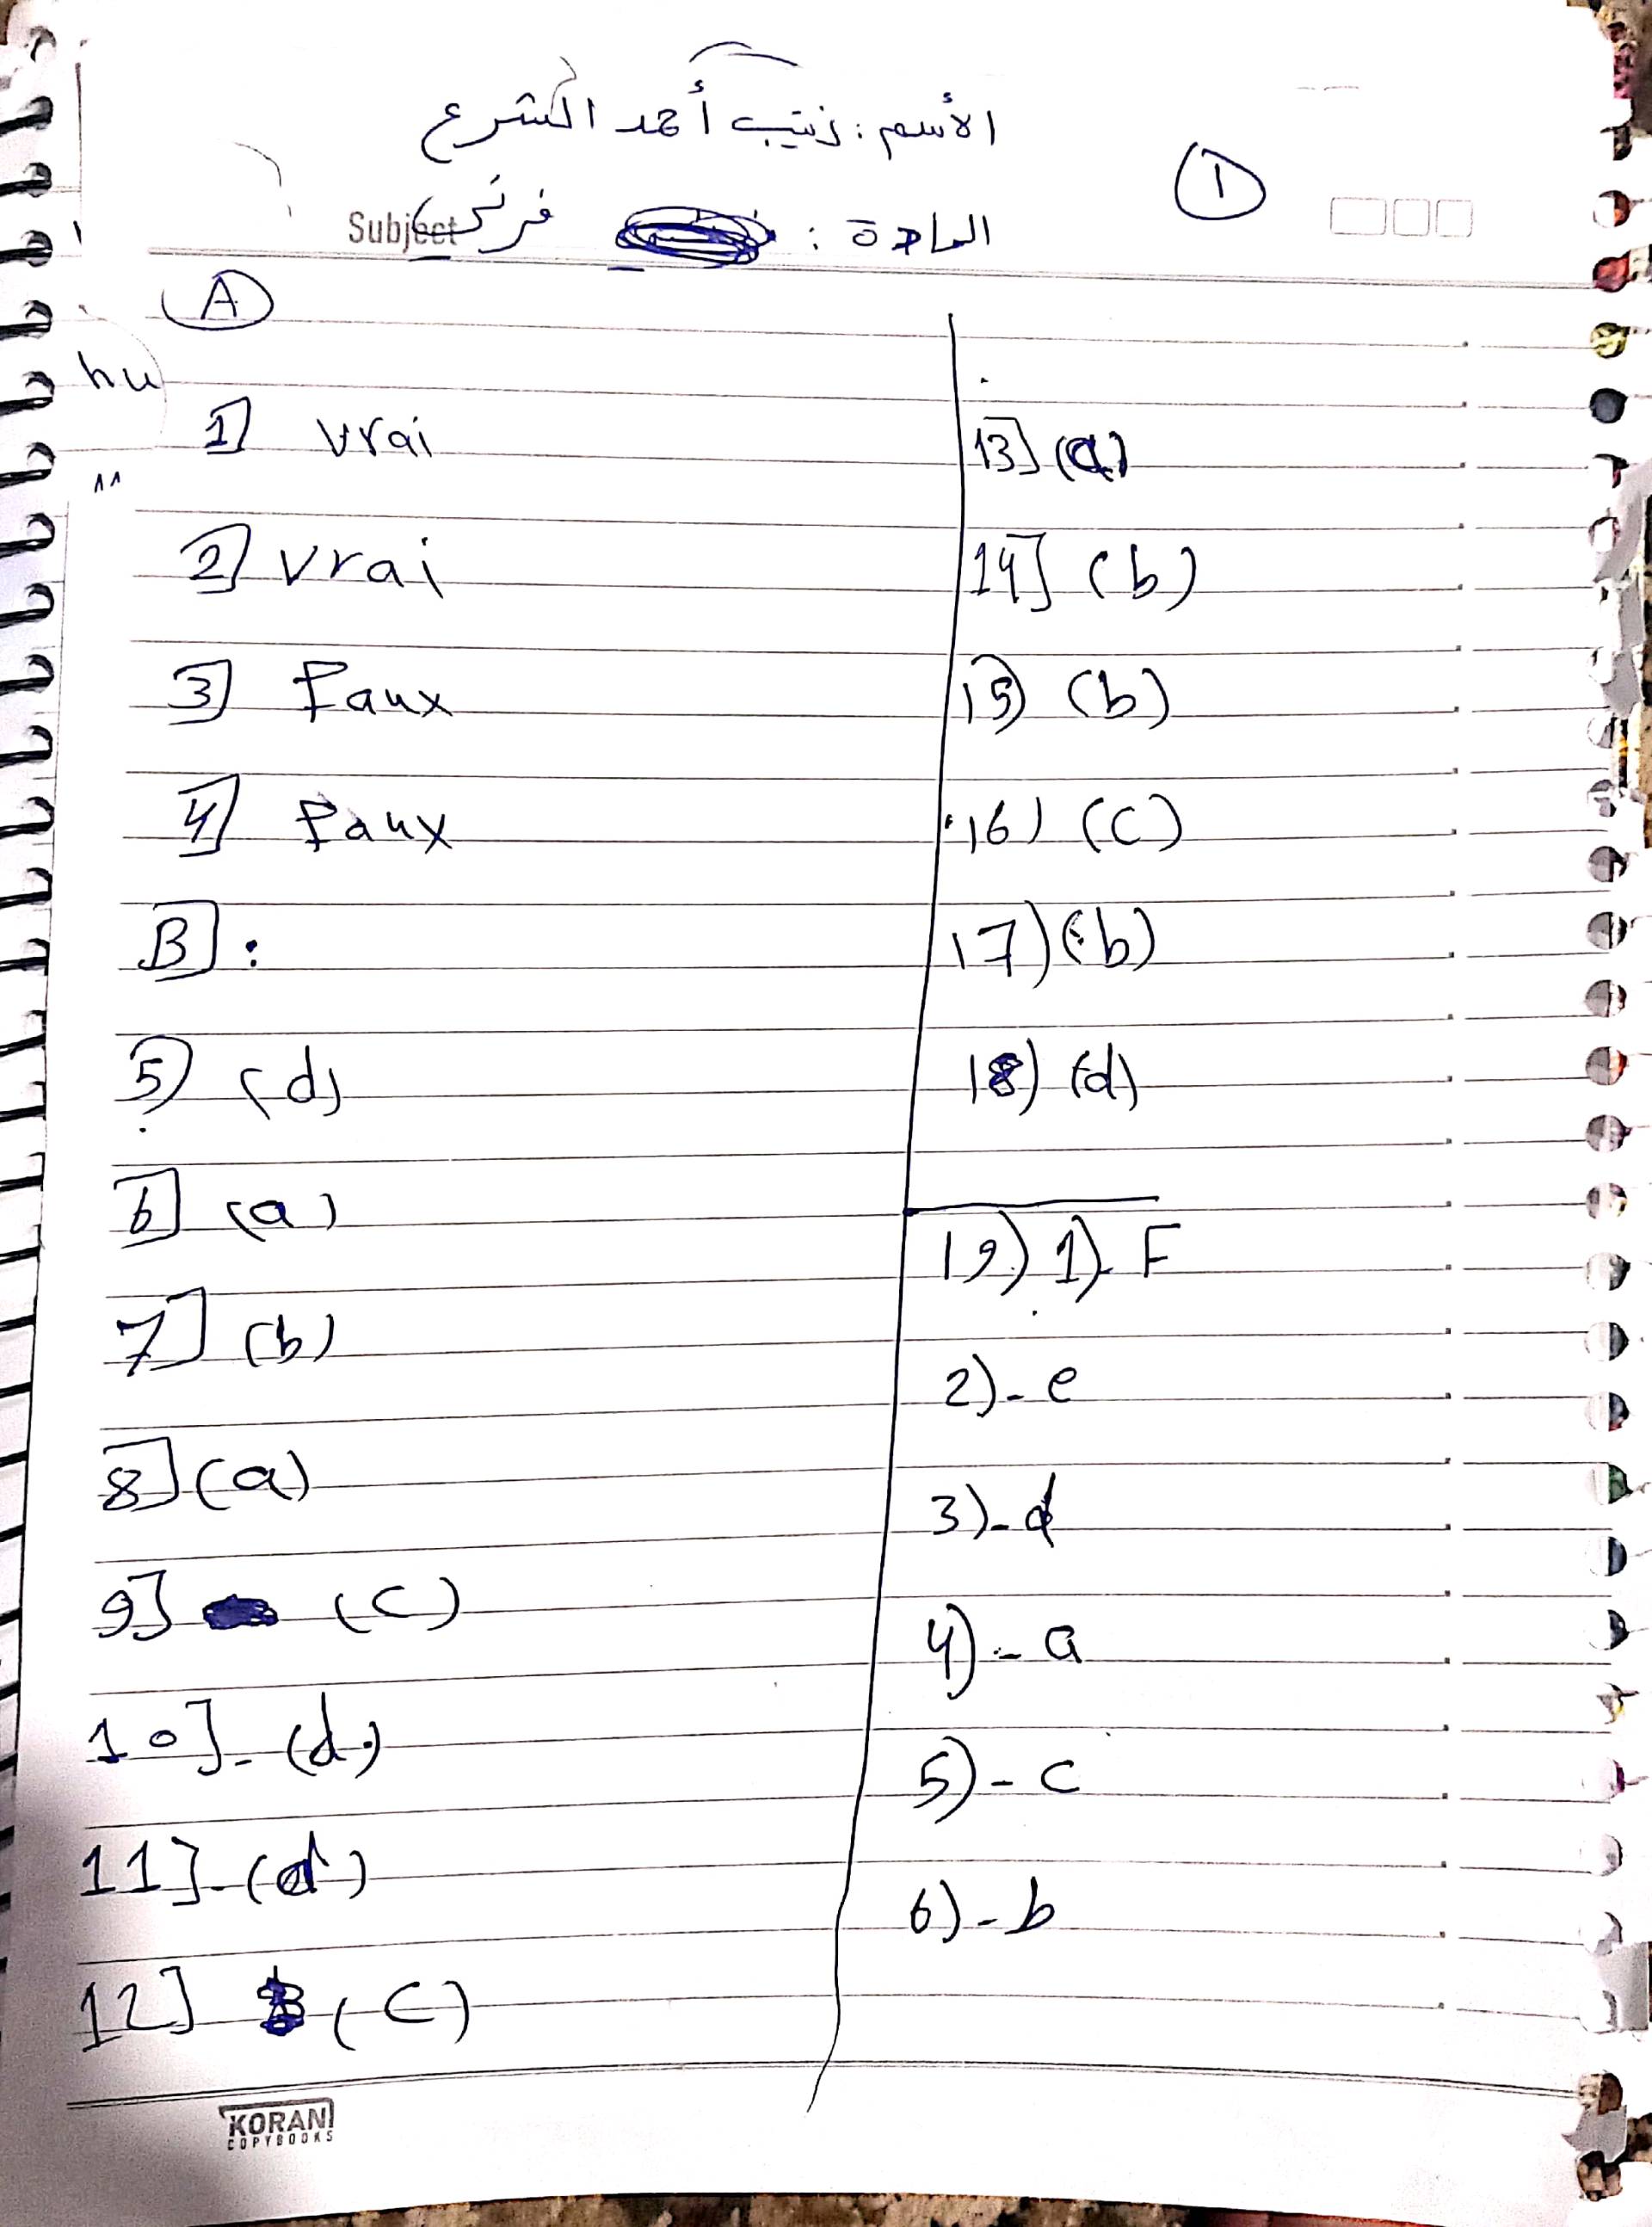 الأسم: زينب أحمد الشرع
1
المادة: فرنسي
Subject
A
hu
1] vrai
2] vrai
3] Faux
4] Faux
B]:
5) (d)
6] (a)
7] (b)
8] (a)
9] (C)
10]- (d)
11]- (d)
12] (C)
13] (a)
14] (b)
15) (b)
16) (C)
17) (b)
18) (d)
19) 1)- F
2)- e
3)- d
4)- a
5)- c
6)- b
KORAN
COPYBOOKS